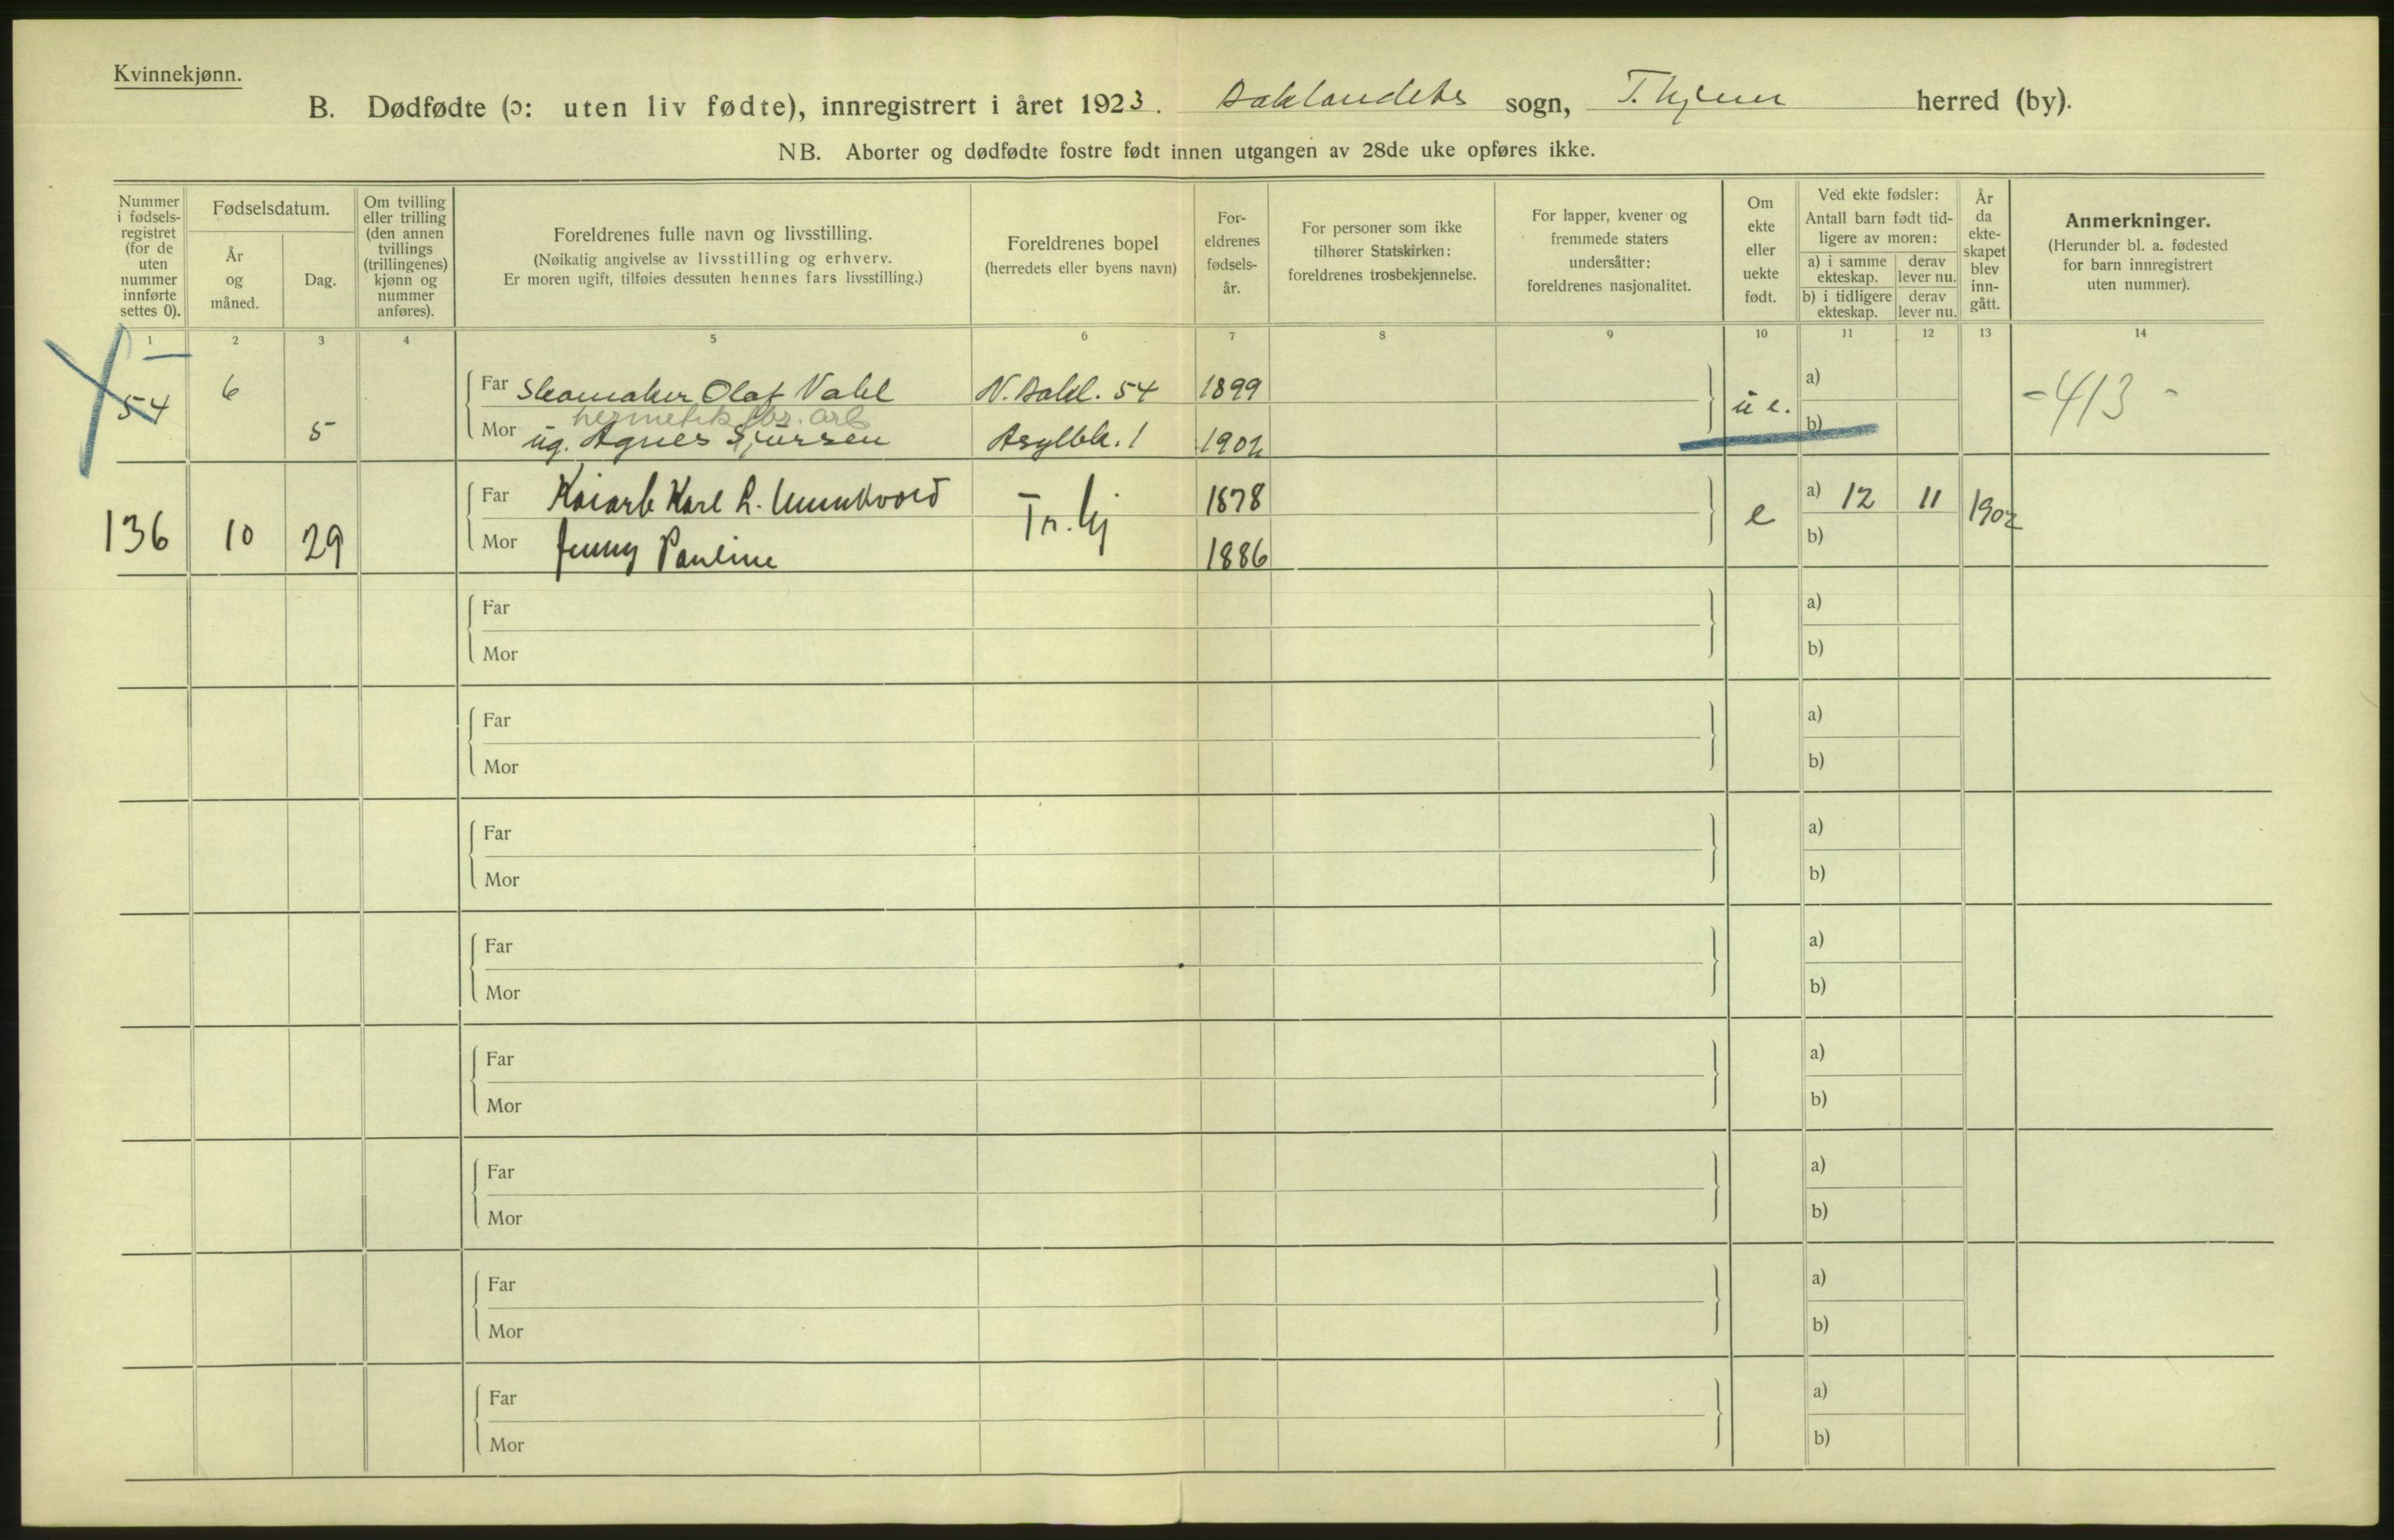 Kvinnekjønn.
B. Dødfødte (ɔ: uten liv fødte), innregistrert i året 1923. Baklandets sogn, T.hjem herred (by).
NB. Aborter og dødfødte fostre født innen utgangen av 28de uke opføres ikke.
Nummer i fødsels-registret (for de uten nummer innførte settes 0).
Fødselsdatum.
År og måned.
Dag.
Om tvilling eller trilling (den annen tvillings (trillingenes) kjønn og nummer anføres).
Foreldrenes fulle navn og livsstilling.
(Nøikatig angivelse av livsstilling og erhverv.
Er moren ugift, tilføies dessuten hennes fars livsstilling.)
Foreldrenes bopel
(herredets eller byens navn)
For-eldrenes fødsels-år.
For personer som ikke tilhører Statskirken: foreldrenes trosbekjennelse.
For lapper, kvener og fremmede staters undersåtter: foreldrenes nasjonalitet.
Om ekte eller uekte født.
Ved ekte fødsler:
Antall barn født tid-ligere av moren:
a) i samme ekteskap. derav lever nu.
b) i tidligere ekteskap. derav lever nu.
År da ekte-skapet blev inn-gått.
Anmerkninger.
(Herunder bl. a. fødested for barn innregistrert uten nummer).
1 2 3 4 5 6 7 8 9 10 11 12 13 14
54 6 5 Far Skomaker Olaf Vahl N. Bakl. 54 1899 u e. a) -413-
hermetikfbr. arb
Mor ug. Agnes Sjursen Asylbk. 1 1902 b)
136 10 29 Far Kaiarb Karl L. Munkvold Tr.hj 1878 e a) 12 11 1902
Mor Jenny Pauline 1886 b)
Far a)
Mor b)
Far a)
Mor b)
Far a)
Mor b)
Far a)
Mor b)
Far a)
Mor b)
Far a)
Mor b)
Far a)
Mor b)
Far a)
Mor b)